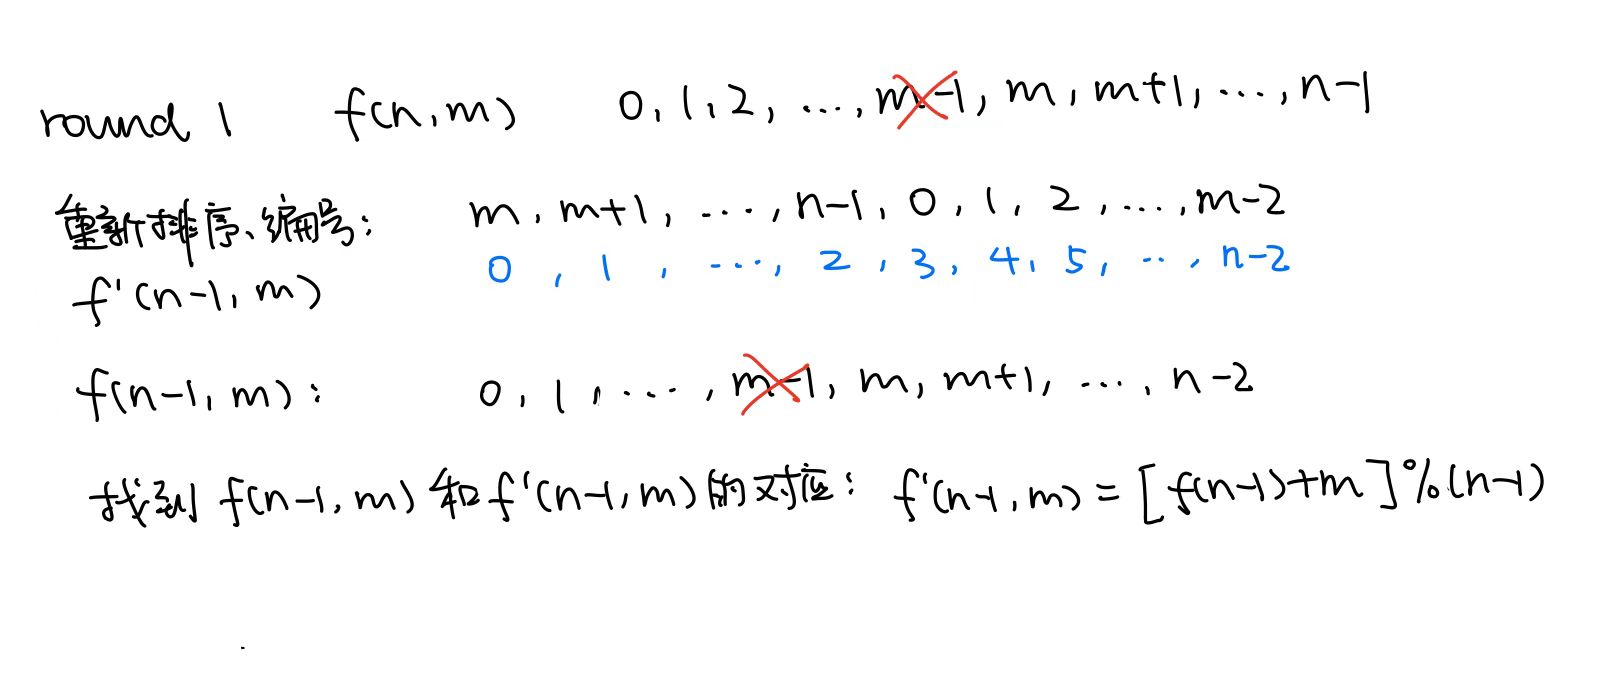 round 1 f(n,m) 0,1,2,...,m-1,m,m+1,...,n-1
重新排序、编号: m,m+1,...,n-1,0,1,2,...,m-2
0,1,...,2,3,4,5,..,n-2
f'(n-1,m)
f(n-1,m): 0,1,...,m-1,m,m+1,...,n-2
找到 f(n-1,m) 和 f'(n-1,m) 的对应: f'(n-1,m)=[f(n-1)+m]%(n-1)